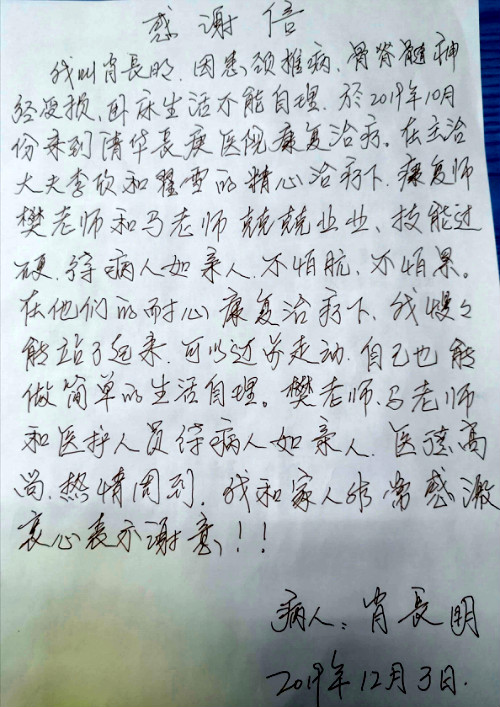 感谢信
我叫肖長明，因患颈椎病，骨脊髓神
经受损，卧床生活不能自理，於2019年10月
份来到清华長庚医院康复治疗。在主治
大夫李欣和翟雪的精心治疗下，康复师
樊老师和马老师兢兢业业、技能过
硬，待病人如亲人，不怕肮，不怕累。
在他们的耐心康复治疗下，我慢々
能站了起来，可以迈步走动，自己也能
做简单的生活自理。樊老师、马老师
和医护人员待病人如亲人，医德高
尚，热情周到，我和家人非常感激
衷心表示谢意！！
病人：肖長明
2019年12月3日.